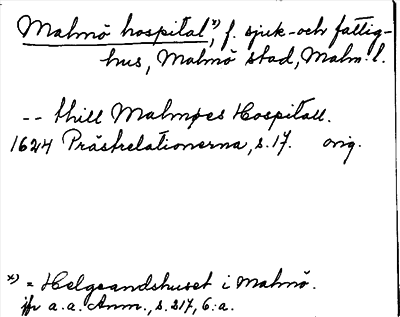 Malmö hospital*), f. sjuk- och fattig-
hus, Malmö stad, Malm. l.
-- thill Malmøes Hospitall.
1624 Prästrelationerna, s. 17. orig.
*) = Helgeandshuset i Malmö.
jfr a. a. Anm., s. 217, 6:a.